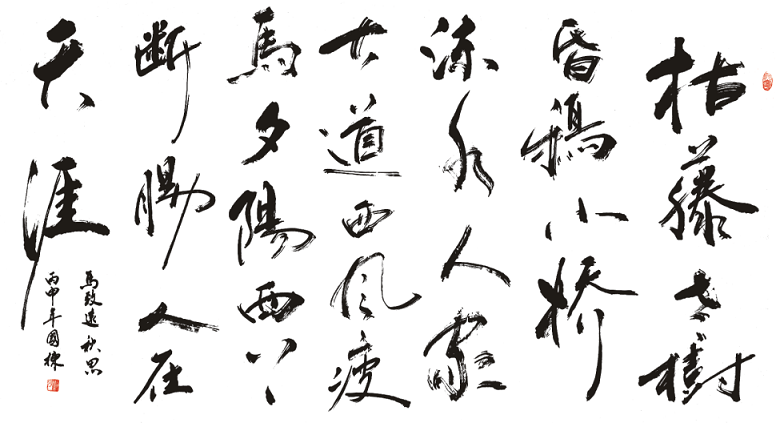 枯藤老樹
昏鴉小桥
流水人家
古道西風瘦
馬夕陽西下
斷腸人在
天涯
馬致遠秋思
丙申年國棟